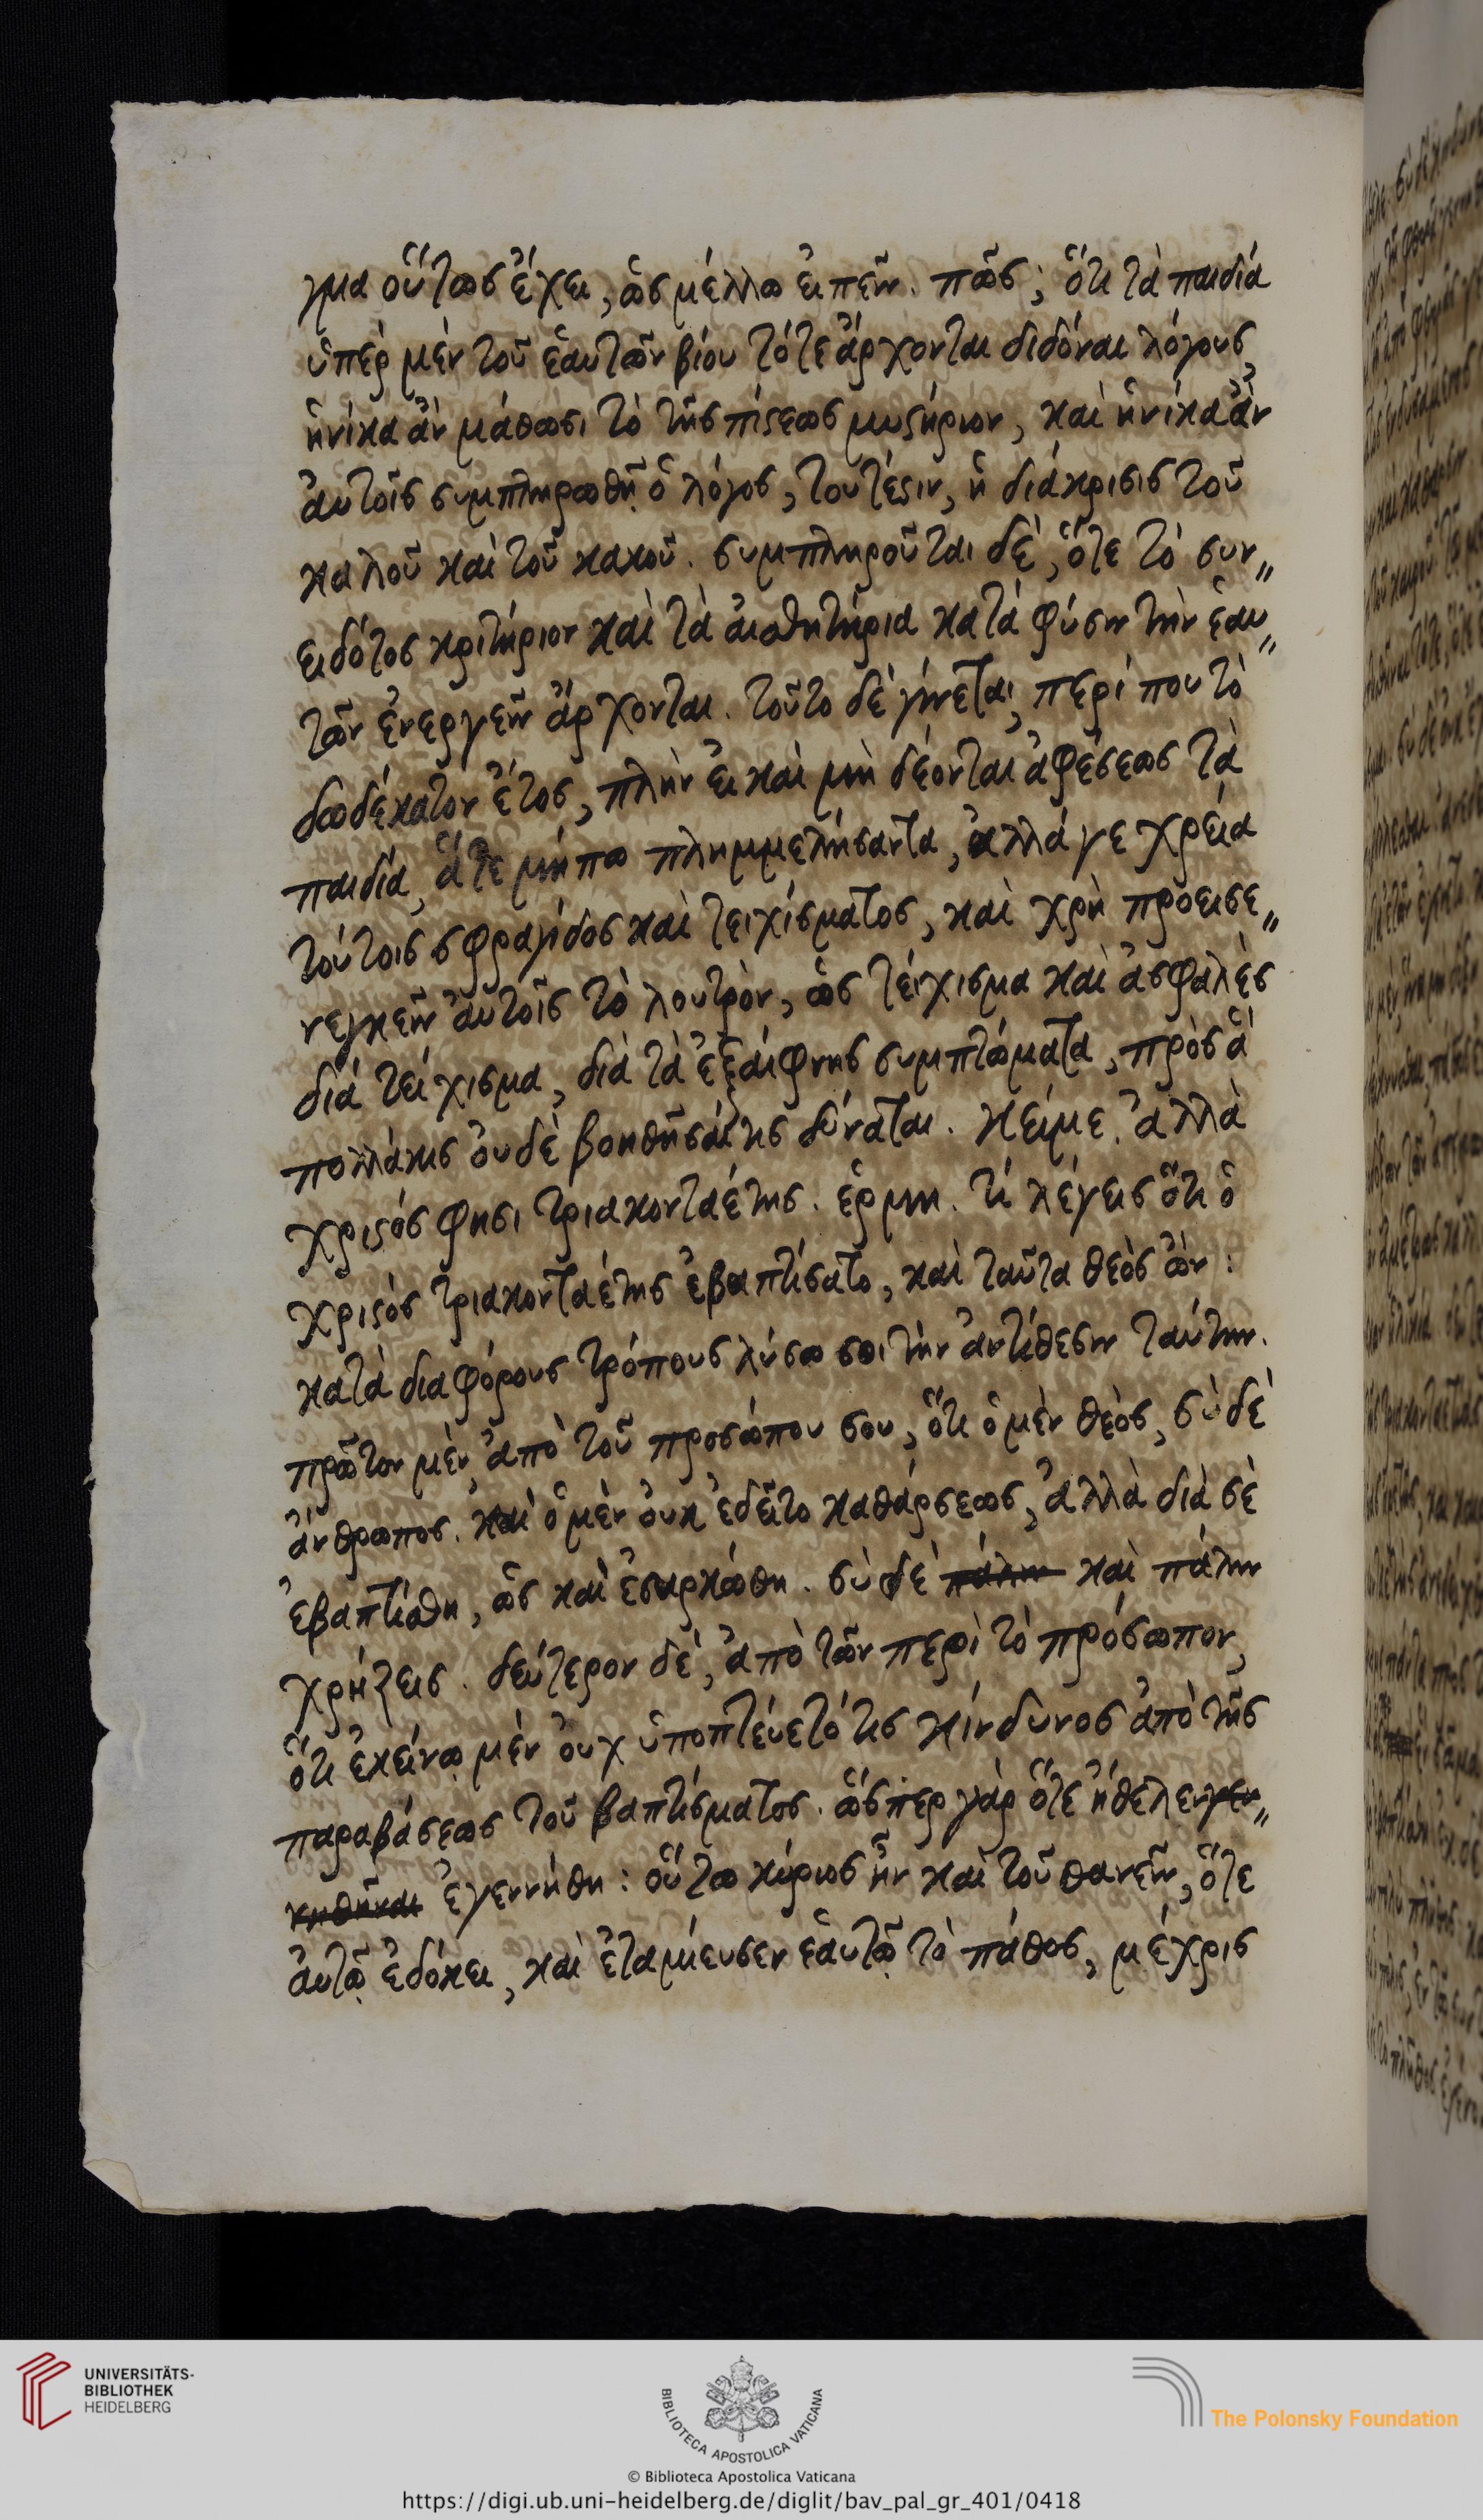 γμα οὕτως ἔχει, ὡς μέλλω εἰπεῖν. πῶς; ὅτι τὰ παιδία
ὑπὲρ μὲν τοῦ ἑαυτῶν βίου τότε ἄρχονται διδόναι λόγους,
ἡνίκα ἂν μάθωσι τὸ τῆς πίστεως μυστήριον, καὶ ἡνίκα ἂν
αὐτοῖς συμπληρωθῇ ὁ λόγος, τουτέστιν, ἡ διάκρισις τοῦ
καλοῦ καὶ τοῦ κακοῦ. συμπληροῦται δὲ, ὅτε τὸ συν〃
ειδότος κριτήριον καὶ τὰ αἰσθητήρια κατὰ φύσιν τὴν ἑαυ〃
τῶν ἐνεργεῖν ἄρχονται. τοῦτο δὲ γίνεται, περί που τὸ
δωδέκατον ἔτος, πλὴν εἰ καὶ μὴ δέονται ἀφέσεως τὰ
παιδία, ἅτε μήπω πλημμελήσαντα, ἀλλά γε χρεία
τούτοις σφραγίδος καὶ τειχίσματος, καὶ χρὴ προεισε〃
νεγκεῖν αὐτοῖς τὸ λουτρὸν, ὡς τείχισμα καὶ ἀσφαλὲς
διὰ τείχισμα, διὰ τὰ ἐξαίφνης συμπτώματα, πρὸς ἃ
πολλάκις οὐδὲ βοηθῆσαί τις δύναται. κείμε. ἀλλὰ
χριστός φησι τριακονταέτης. ἑρμη. τί λέγεις ὅτι ὁ
χριστὸς τριακονταέτης ἐβαπτίσατο, καὶ ταῦτα θεὸς ὤν:
κατὰ διαφόρους τρόπους λύσω σοι τὴν ἀντίθεσιν ταύτην.
πρῶτον μὲν, ἀπὸ τοῦ προσώπου σου, ὅτι ὁ μὲν θεὸς, σὺ δὲ
ἄνθρωπος. καὶ ὁ μὲν οὐκ ἐδεῖτο καθάρσεως, ἀλλὰ διὰ σὲ
ἐβαπτίσθη, ὡς καὶ ἐσαρκώθη. σὺ δὲ πάλιν καὶ πάλιν
χρῄζεις. δεύτερον δὲ, ἀπὸ τῶν περὶ τὸ πρόσωπον,
ὅτι ἐκείνῳ μὲν οὐχ ὑποπτεύετό τις κίνδυνος ἀπὸ τῆς
παραβάσεως τοῦ βαπτίσματος. ὥσπερ γὰρ ὅτε ἤθελε γεν〃
νηθῆναι ἐγεννήθη: οὕτω κύριος ἦν καὶ τοῦ θανεῖν, ὅτε
αὐτῷ ἐδόκει, καὶ ἐταμίευσεν ἑαυτῷ τὸ πάθος, μέχρις
UNIVERSITÄTS-
BIBLIOTHEK
HEIDELBERG
BIBLIOTECA APOSTOLICA VATICANA
The Polonsky Foundation
© Biblioteca Apostolica Vaticana
https://digi.ub.uni-heidelberg.de/diglit/bav_pal_gr_401/0418